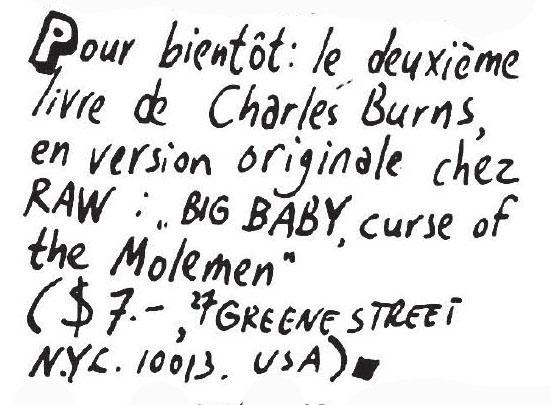 Pour bientôt: le deuxième
livre de Charles Burns,
en version originale chez
RAW : „BIG BABY, curse of
the Molemen"
($7.-, 27 GREENE STREET
N.Y.C. 10013. USA)